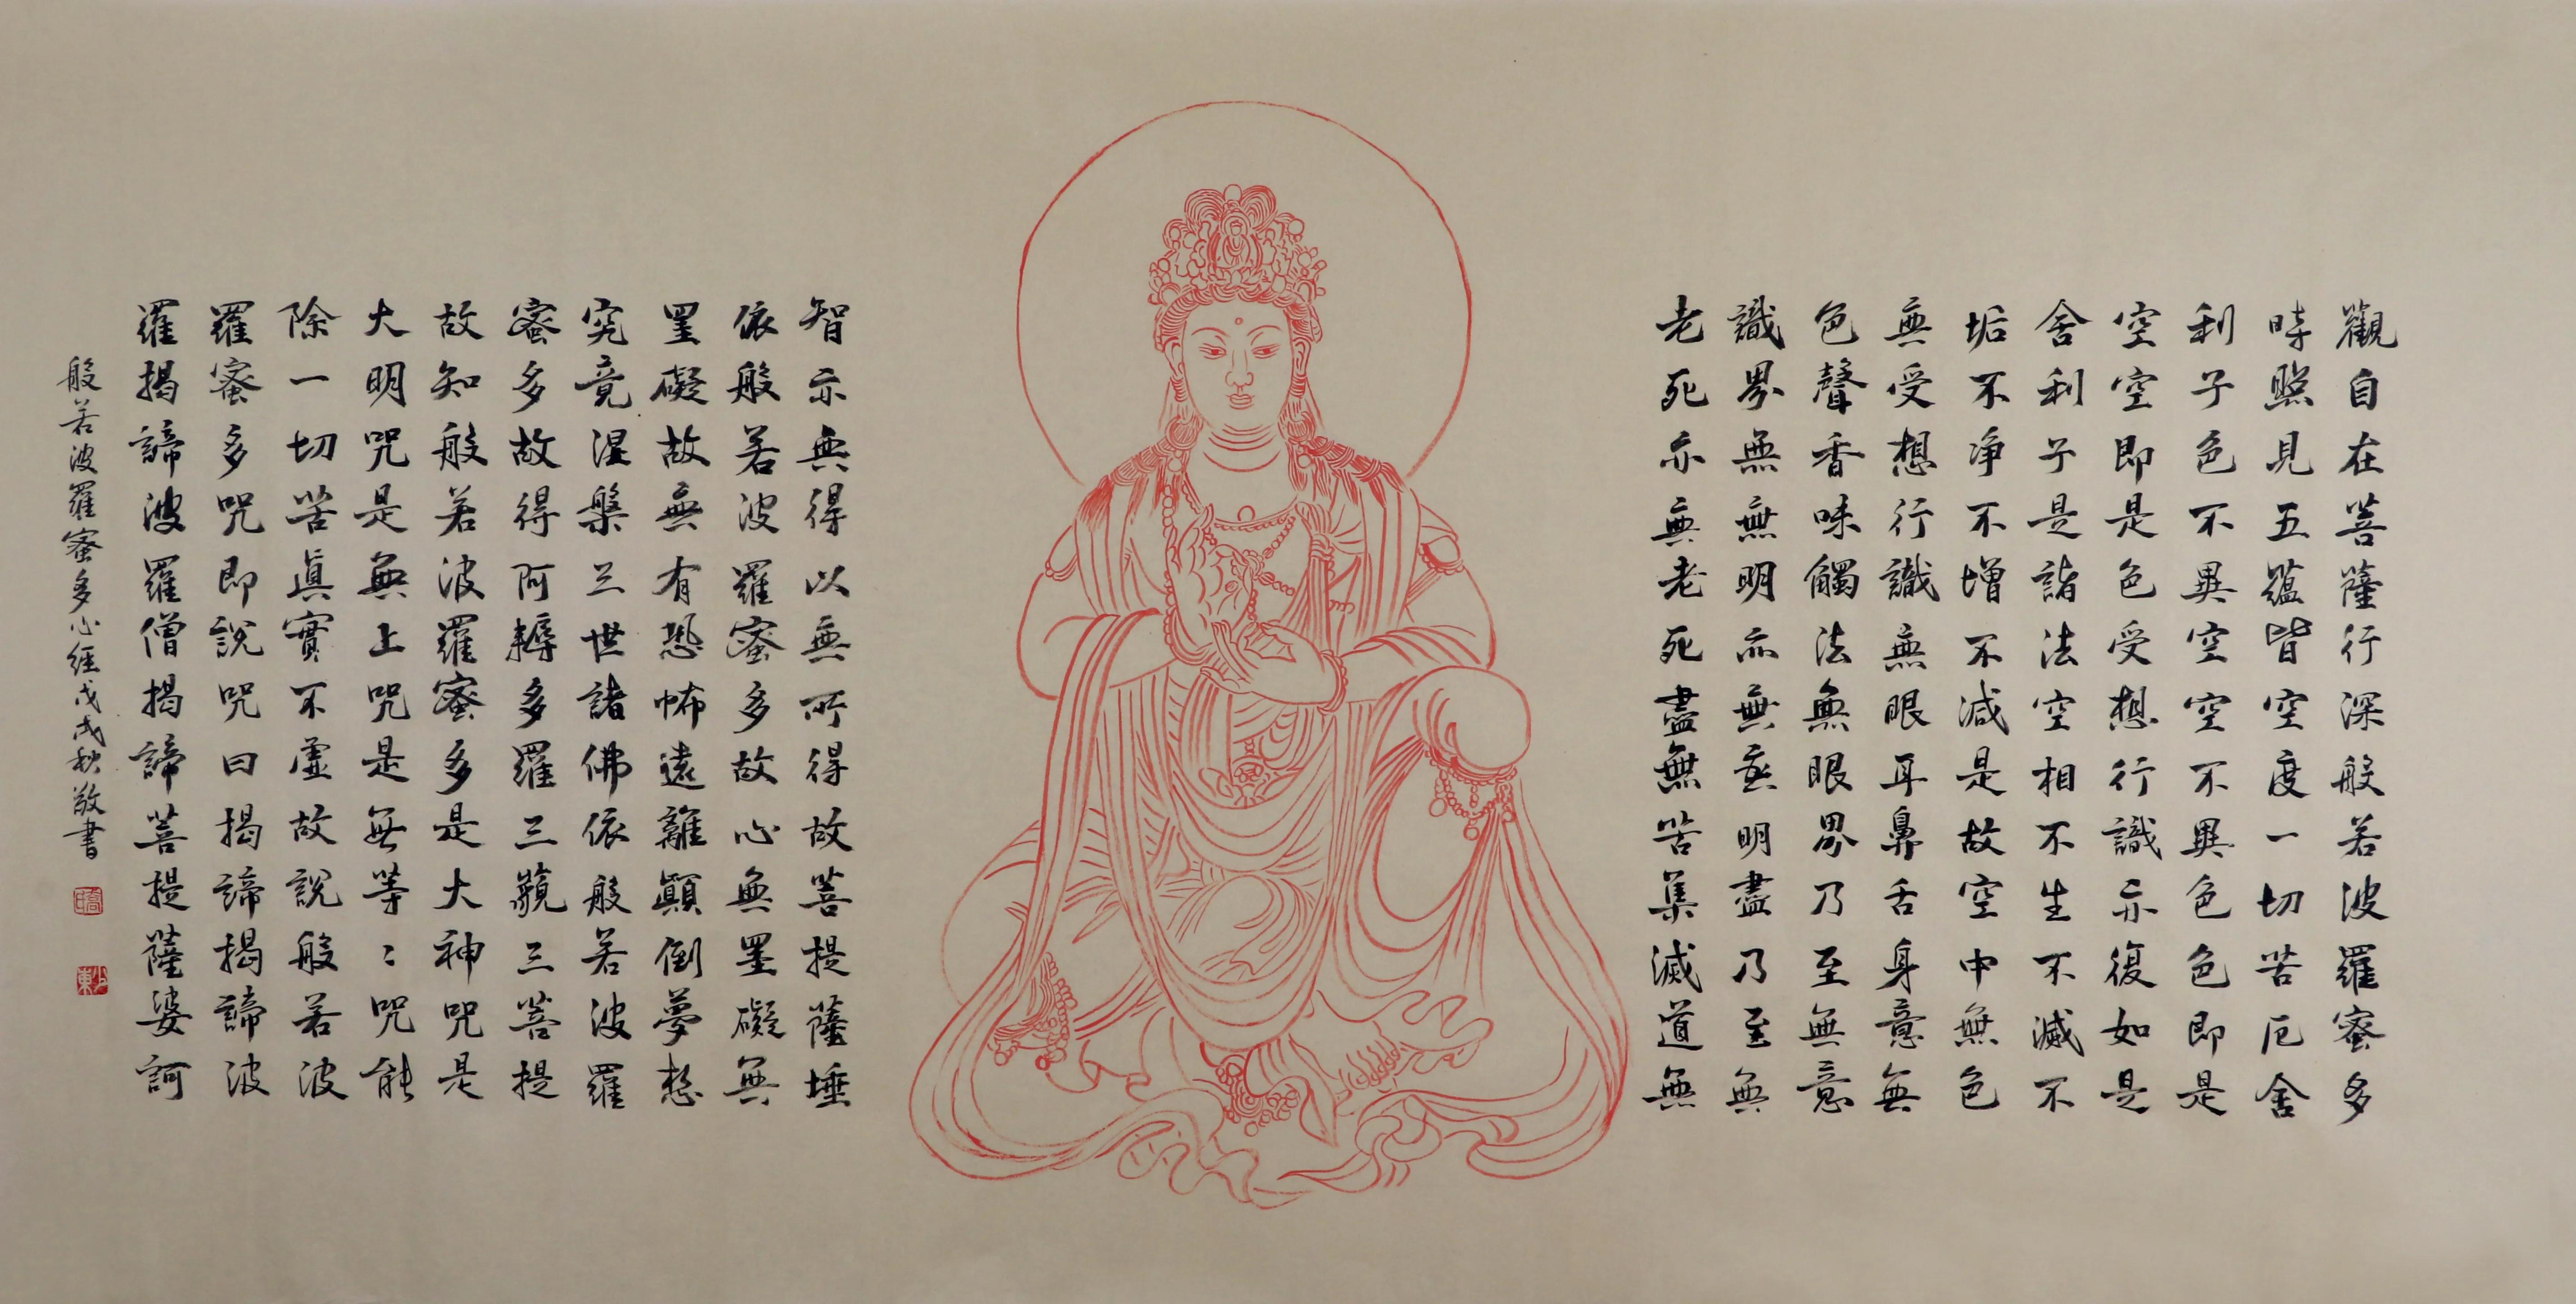 觀自在菩薩行深般若波羅蜜多
時照見五蘊皆空度一切苦厄舍
利子色不異空空不異色色即是
空空即是色受想行識亦復如是
舍利子是諸法空相不生不滅不
垢不净不增不減是故空中無色
無受想行識無眼耳鼻舌身意無
色聲香味觸法無眼界乃至無意
識界無無明亦無無明盡乃至無
老死亦無老死盡無苦集滅道無
智亦無得以無所得故菩提薩埵
依般若波羅蜜多故心無罣礙無
罣礙故無有恐怖遠離顛倒夢想
究竟涅槃三世諸佛依般若波羅
蜜多故得阿耨多羅三藐三菩提
故知般若波羅蜜多是大神咒是
大明咒是無上咒是無等〻咒能
除一切苦眞實不虛故說般若波
羅蜜多咒即說咒曰揭諦揭諦波
羅揭諦波羅僧揭諦菩提薩婆訶
般若波羅蜜多心經戊戌秋敬書
少東